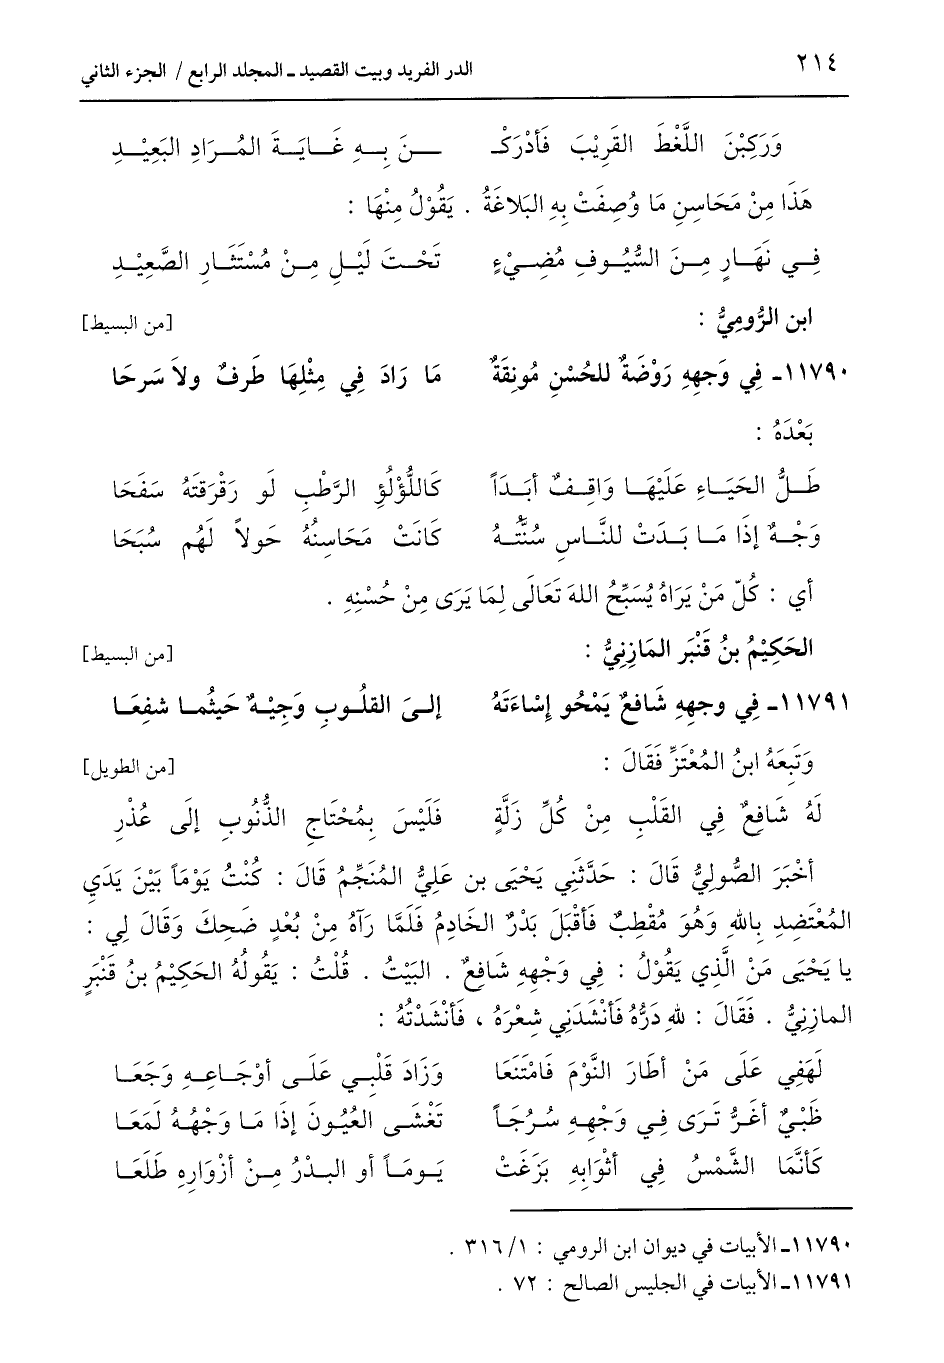 ٢١٤
الدر الفريد وبيت القصيد ـ المجلد الرابع / الجزء الثاني
وَرَكِبْنَ اللَّفْظَ القَرِيْبَ فَأَدْرَكْـ ـــنَ بِـهِ غَـايَـةَ المُـرَادِ البَعِيْـدِ
هَذَا مِنْ مَحَاسِنِ مَا وُصِفَتْ بِهِ البَلاَغَةُ . يَقُوْلُ مِنْهَا :
فِـي نَهَـارٍ مِـنَ السُّيُـوفِ مُضِـيْءٍ تَحْـتَ لَيْـلٍ مِـنْ مُسْتَثَـارِ الصَّعِيْـدِ
ابن الرُّومِيُّ : [من البسيط]
١١٧٩٠ـ فِي وَجهِهِ رَوْضَةٌ للحُسْنِ مُونِقَةٌ مَا رَادَ فِي مِثْلِهَا طَرفٌ ولاَ سَرحَا
بَعْدَهُ :
طَـلُّ الحَيَـاءِ عَلَيْهَـا وَاقِـفٌ أبَـدَاً كَاللُّؤلُؤِ الرَّطْبِ لَو رَقْرَقتَهُ سَفَحَا
وَجْـهٌ إذَا مَـا بَـدَتْ للنَّـاسِ سُنَّتُـهُ كَانَتْ مَحَاسِنُهُ حَولاً لَهُم سُبَحَا
أي : كُلّ مَنْ يَرَاهُ يُسَبِّحُ اللهَ تَعَالَى لِمَا يَرَى مِنْ حُسْنِهِ .
الحَكِيْمُ بنُ قَنْبَر المَازِنِيُّ : [من البسيط]
١١٧٩١ـ فِي وجهِهِ شَافعٌ يَمْحُو إسْاءَتَهُ إلـىَ القلُـوبِ وَجِيْـهٌ حَيثُمـا شفِعَـا
وَتَبِعَهُ ابنُ المُعْتَزِّ فَقَالَ : [من الطويل]
لَهُ شَافِعٌ فِي القَلْبِ مِنْ كُلِّ زَلَّةٍ فَلَيْسَ بِمُحْتَاجِ الذُّنُوبِ إلَى عُذْرِ
أخْبَرَ الصُّولِيُّ قَالَ : حَدَّثَنِي يَحْيَى بن عَلِيُّ المُنَجِّمُ قَالَ : كُنْتُ يَوْمَاً بَيْنَ يَدَيِ
المُعْتَضِدِ بِاللهِ وَهُوَ مُقْطِبٌ فَأقْبَلَ بَدْرٌ الخَادِمُ فَلَمَّا رَآهُ مِنْ بُعْدٍ ضَحِكَ وَقَالَ لِي :
يا يَحْيَى مَنْ الَّذِي يَقُوْلُ : فِي وَجْهِهِ شَافعٌ . البَيْتُ . قُلْتُ : يَقُولُهُ الحَكِيْمُ بنُ قَنْبَرٍ
المازِنِيُّ . فَقَالَ : للهِ دَرُّهُ فَأنْشَدَنِي شِعْرَهُ ، فَأنْشَدْتُهُ :
لَهَفِي عَلَى مَنْ أطَارَ النَّوْمَ فَامْتَنَعَا وَزَادَ قَلْبِـي عَلَـى أوْجَـاعِـهِ وَجَعَـا
ظَبْيٌ أغَرُّ تَـرَى فِـي وَجْهِـهِ سُـرُجَـاً تَغْشَـى العُيُـونَ إذَا مَـا وَجْهُـهُ لَمَعَـا
كَأنَّمَا الشَّمْسُ فِي أثْوَابِهِ بَزَغَتْ يَـومَـاً أو البَـدْرُ مِـنْ أزْوَارِهِ طَلَعَـا
١١٧٩٠ـ الأبيات في ديوان ابن الرومي : ١/ ٣١٦ .
١١٧٩١ـ الأبيات في الجليس الصالح : ٧٢ .